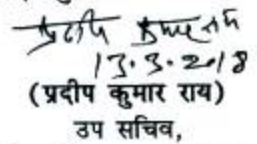 प्रदीप कुमार राय
13.3.2018
(प्रदीप कुमार राय)
उप सचिव,